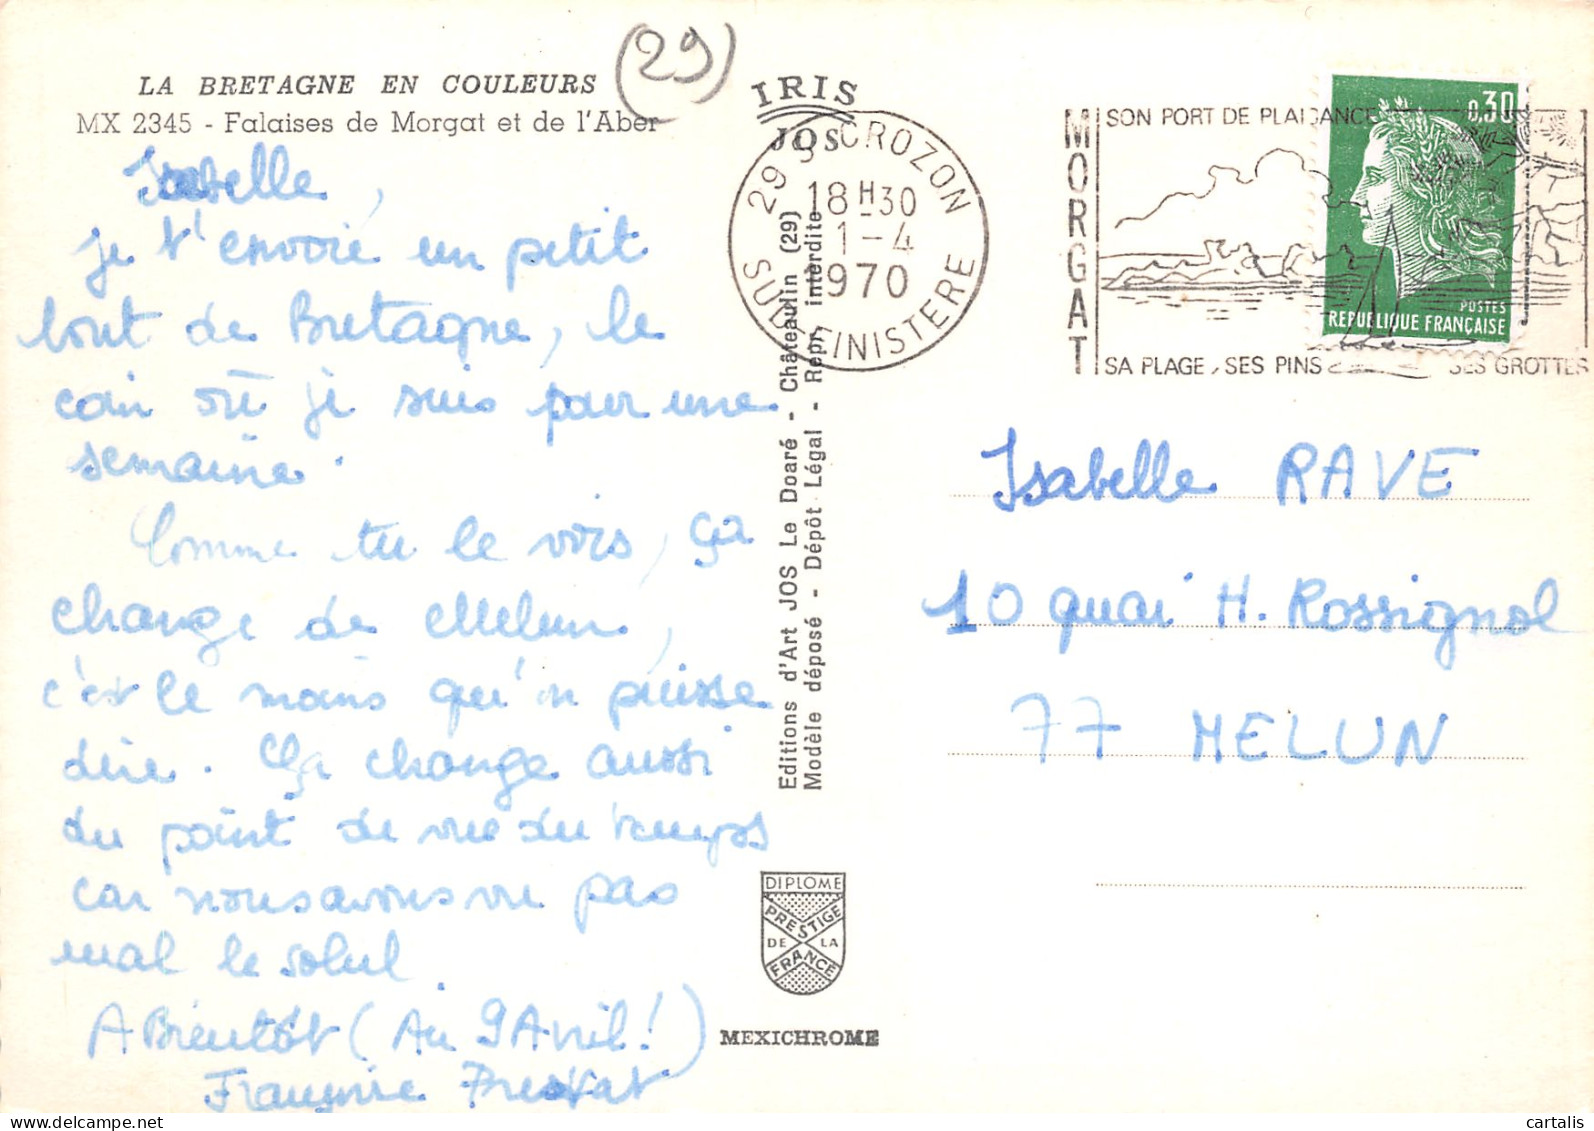 (29)
LA BRETAGNE EN COULEURS
MX 2345 - Falaises de Morgat et de l'Aber
Isabelle,
je t'envoie un petit
bout de Bretagne, le
coin où je suis pour une
semaine.
Comme tu le vois, ça
change de Melun,
c'est le moins qu'on puisse
dire. Ça change aussi
du point de vue du temps
car nous avons vu pas
mal le soleil
A Bientôt (Au 9 Avril!)
Françoise
IRIS
JOS
29 S CROZON
18 H 30
1-4
1970
SUD-FINISTERE
Editions d'Art JOS Le Doaré - Châteaulin (29)
Modèle déposé - Dépôt Légal - Repr. interdite
DIPLOME
PRESTIGE
DE LA
FRANCE
MEXICHROME
MORGAT
SON PORT DE PLAISANCE
SA PLAGE, SES PINS
SES GROTTES
0,30
POSTES
REPUBLIQUE FRANÇAISE
Isabelle RAVE
10 quai H. Rossignol
77 MELUN
cartalis